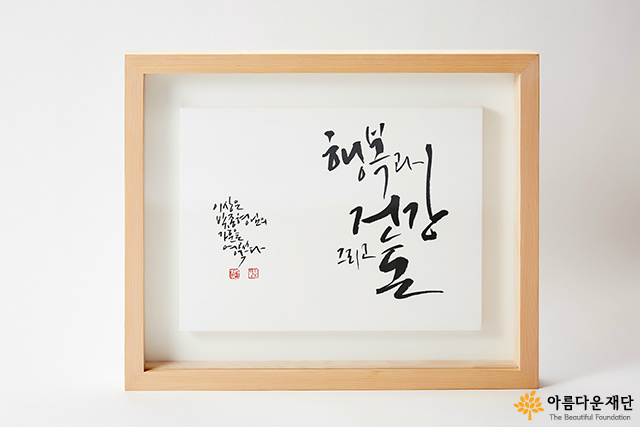 행복과
건강
그리고 돈
이상은
박종형님의
가훈은
아름다운재단
The Beautiful Foundation